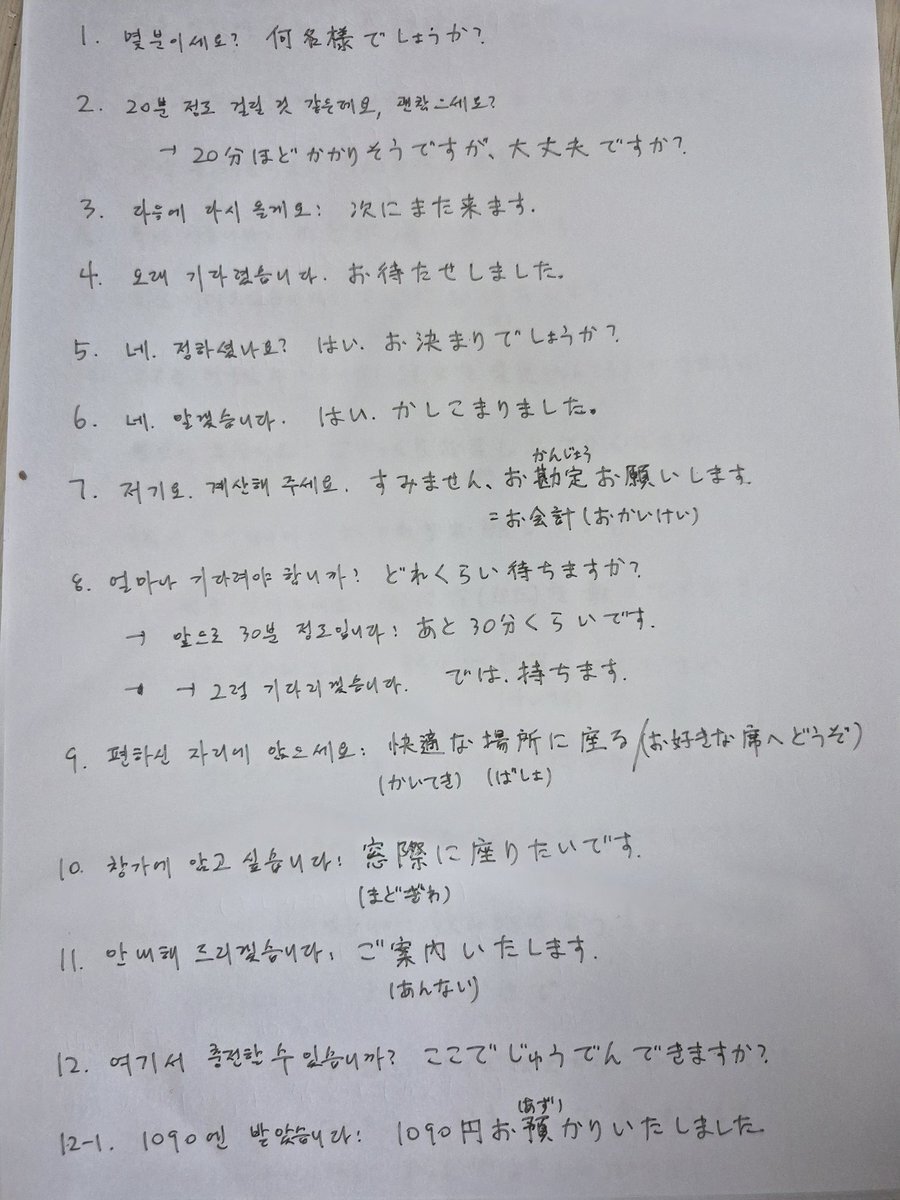 1. 몇분이세요? 何名様でしょうか?
2. 20분 정도 걸릴 것 같은데요, 괜찮으세요?
→ 20分ほどかかりそうですが、大丈夫ですか?
3. 다음에 다시 올게요: 次にまた来ます.
4. 오래 기다렸습니다. お待たせしました。
5. 네. 정하셨나요? はい. お決まりでしょうか?
6. 네. 알겠습니다. はい. かしこまりました。
かんじょう
7. 저기요. 계산해 주세요. すみません、お勘定お願いします.
= お会計 (おかいけい)
8. 얼마나 기다려야 합니까? どれくらい待ちますか?
→ 앞으로 30분 정도입니다: あと30分くらいです.
→ → 그럼 기다리겠습니다. では. 持ちます.
9. 편하신 자리에 앉으세요: 快適な場所に座る/(お好きな席へどうぞ)
(かいてき) (ばしょ)
10. 창가에 앉고 싶습니다: 窓際に座りたいです.
(まどぎわ)
11. 안내해 드리겠습니다: ご案内いたします.
(あんない)
12. 여기서 충전할 수 있습니까? ここでじゅうでんできますか?
(あず)
12-1. 1090엔 받았습니다: 1090円お預かりいたしました.